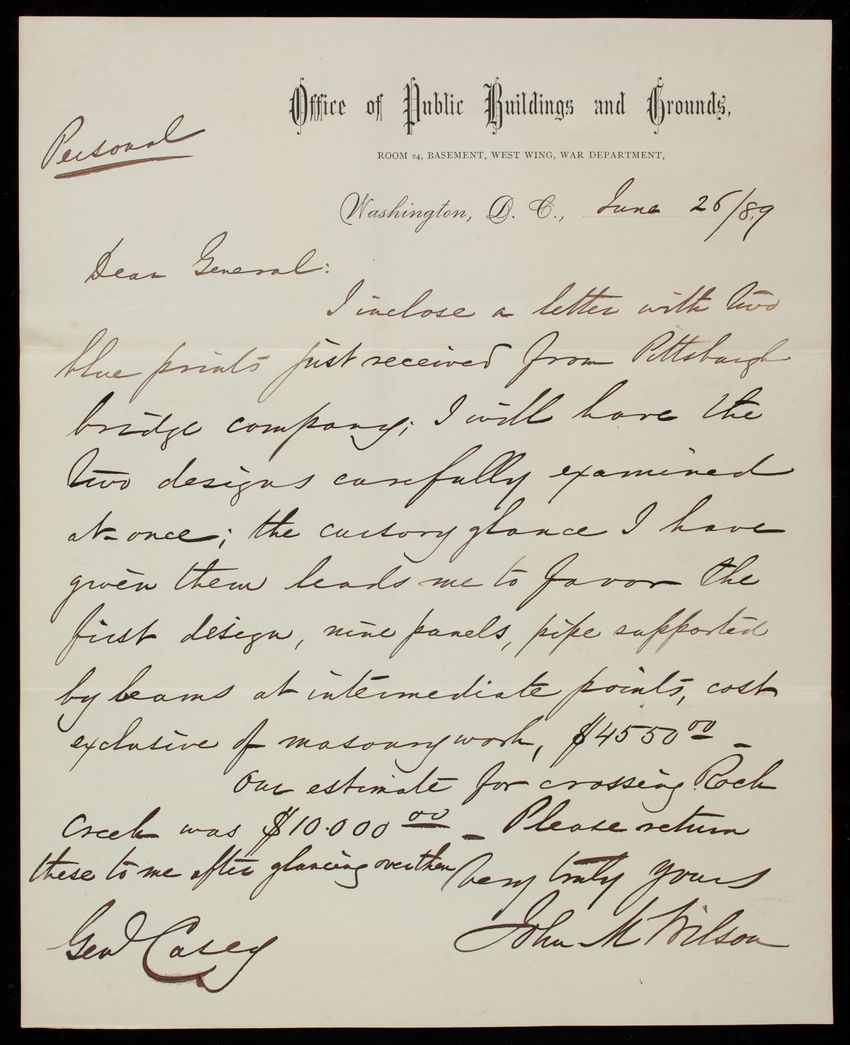 Office of Public Buildings and Grounds,
Personal
ROOM 24, BASEMENT, WEST WING, WAR DEPARTMENT,
Washington, D. C., June 26/89
Dear General:
I inclose a letter with two
blue prints just received from Pittsburgh
bridge company; I will have the
two designs carefully examined
at once; the cursory glance I have
given them leads me to favor the
first design, nine panels, pipe supported
by beams at intermediate points, cost
exclusive of masonry work, $4550 00 –
Our estimate for crossing Rock
Creek was $10.000 00 – Please return
these to me after glancing over them
Very truly yours
John M Wilson
Genl Casey